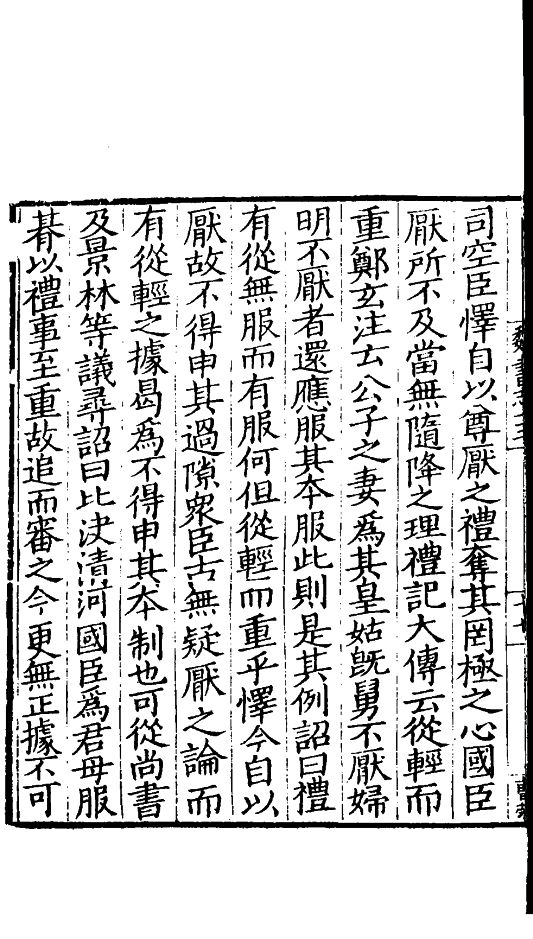 司空臣懌自以尊厭之禮奪其罔極之心國臣
厭所不及當無隨降之理禮記大傳云從輕而
重鄭玄注云公子之妻爲其皇姑旣舅不厭婦
明不厭者還應服其本服此則是其例詔曰禮
有從無服而有服何但從輕而重乎懌今自以
厭故不得申其過隙衆臣古無疑厭之論而
有從輕之據曷爲不得申其本制也可從尚書
及景林等議尋詔曰比決清河國臣爲君母服
朞以禮事至重故追而審之今更無正據不可